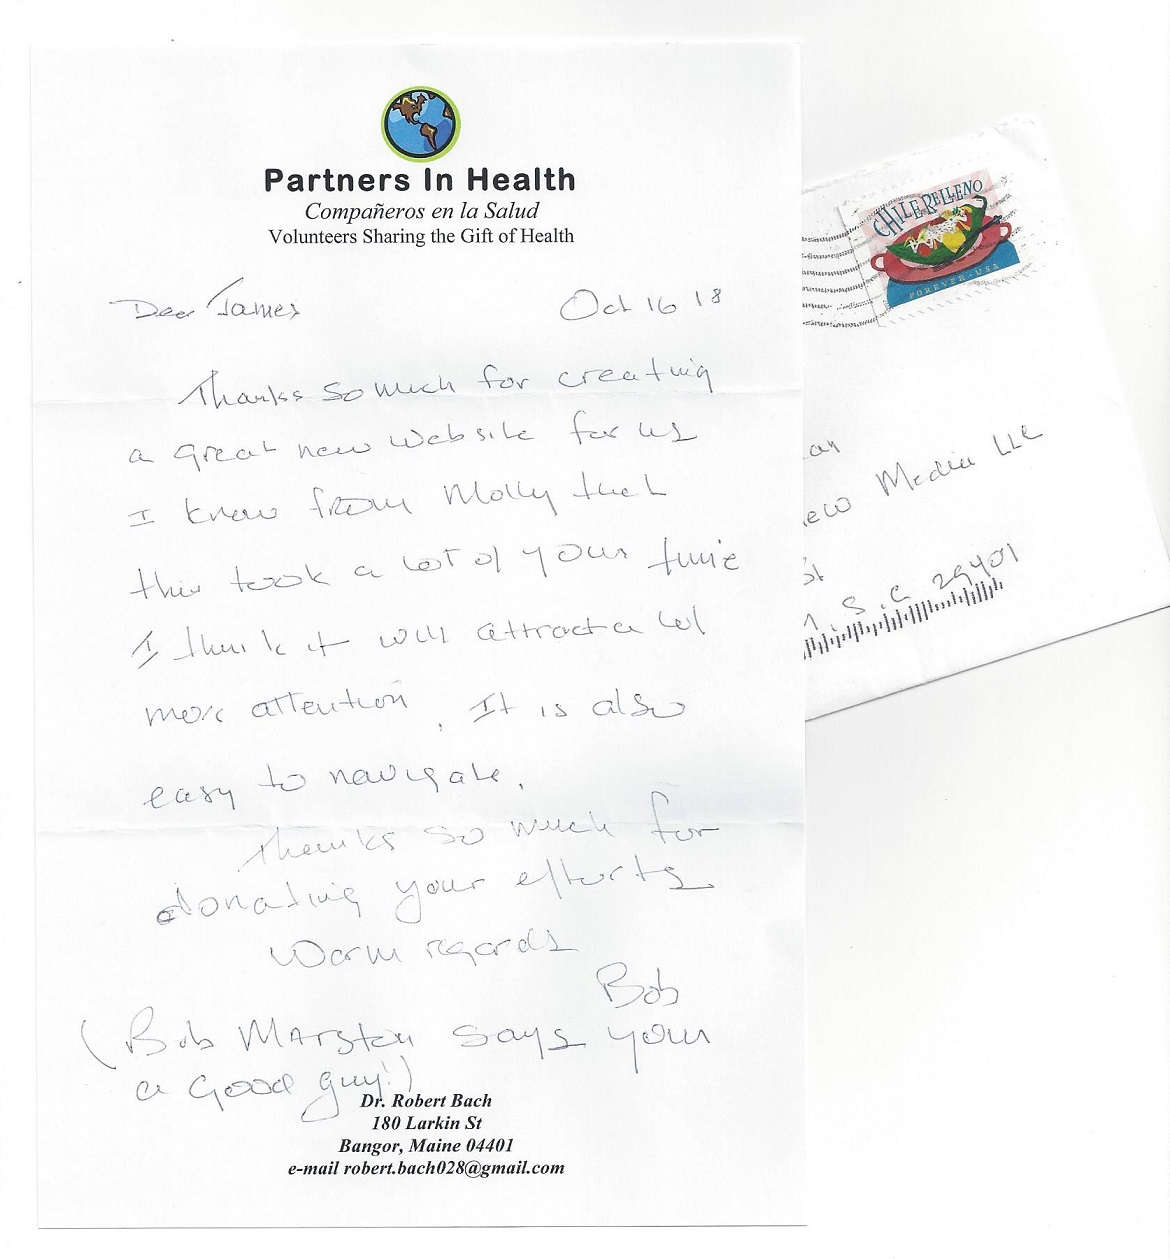 Partners In Health
Compañeros en la Salud
Volunteers Sharing the Gift of Health
Dear James Oct 16 18
Thanks so much for creating
a great new website for us
I know from Molly that
this took a lot of your time
I think it will attract a lot
more attention. It is also
easy to navigate.
Thanks so much for
donating your efforts
Warm regards
Bob
(Bob Marston says your
a Good guy!)
Dr. Robert Bach
180 Larkin St
Bangor, Maine 04401
e-mail robert.bach028@gmail.com
CHILE RELLENO
FOREVER · USA
an
ew Media LLC
St
S.C 29401